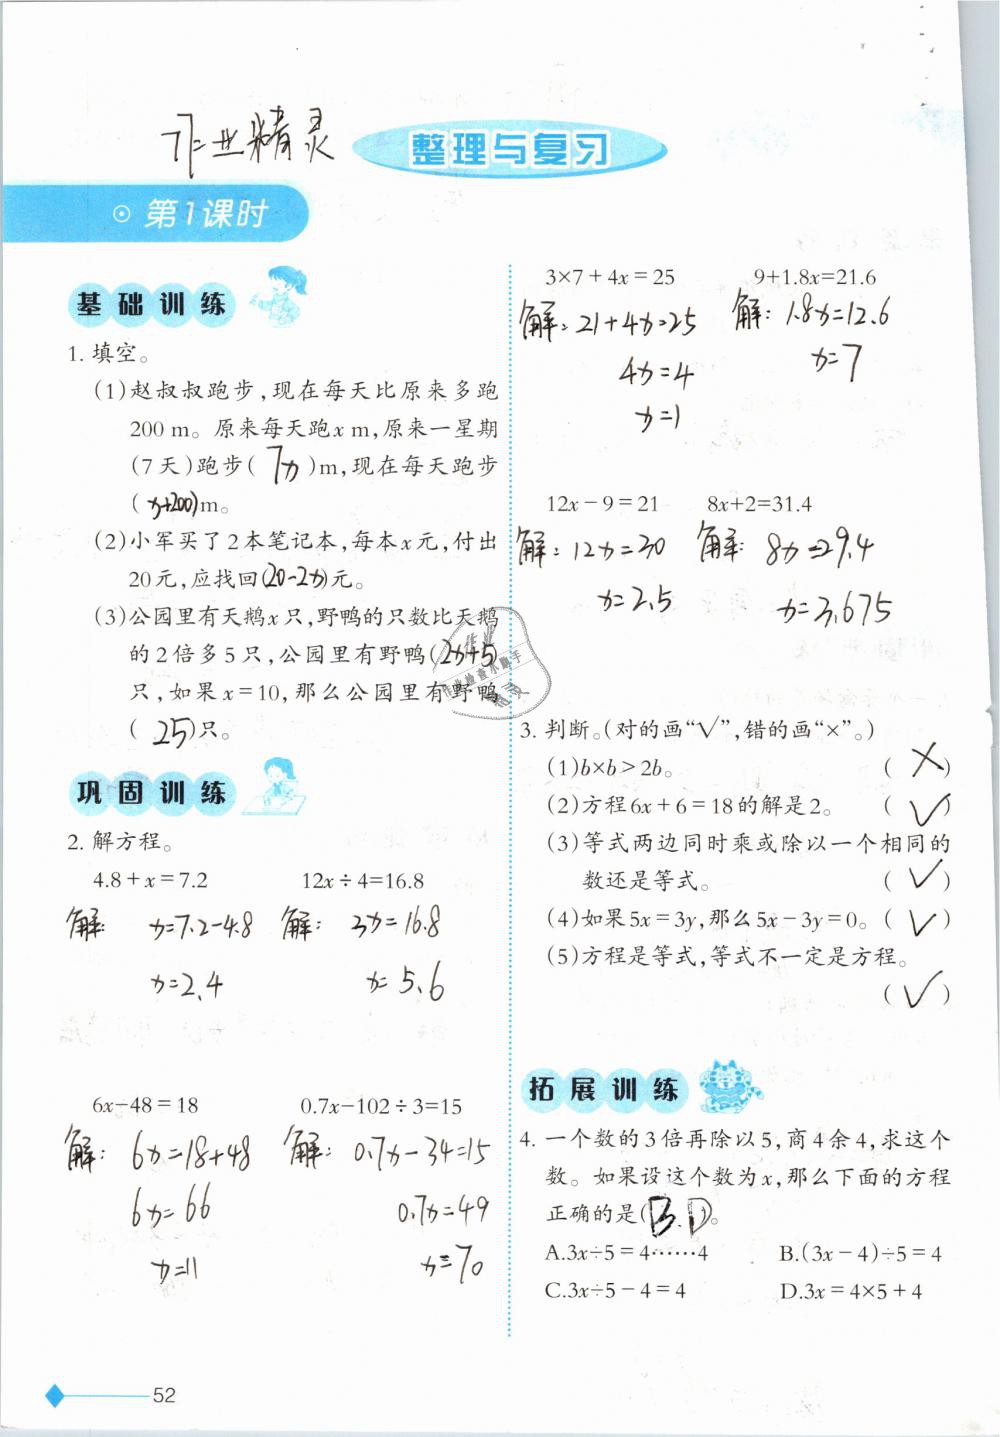 作业精灵
整理与复习
第1课时
基础训练
1. 填空。
(1)赵叔叔跑步,现在每天比原来多跑
200 m。原来每天跑x m,原来一星期
(7天)跑步( 7x )m,现在每天跑步
( x+200)m。
(2)小军买了2本笔记本,每本x元,付出
20元,应找回(20-2x)元。
(3)公园里有天鹅x只,野鸭的只数比天鹅
的2倍多5只,公园里有野鸭(2x+5)
只,如果x=10,那么公园里有野鸭
( 25)只。
巩固训练
2. 解方程。
4.8+x=7.2 12x÷4=16.8
解: x=7.2-4.8 解: 3x=16.8
x=2.4 x=5.6
6x-48=18 0.7x-102÷3=15
解: 6x=18+48 解: 0.7x-34=15
6x=66 0.7x=49
x=11 x=70
52
3×7+4x=25 9+1.8x=21.6
解: 21+4x=25 解: 1.8x=12.6
4x=4 x=7
x=1
12x-9=21 8x+2=31.4
解: 12x=30 解: 8x=29.4
x=2.5 x=3.675
3. 判断。(对的画“√”,错的画“×”。)
(1)b×b>2b。 ( × )
(2)方程6x+6=18的解是2。 ( √ )
(3)等式两边同时乘或除以一个相同的
数还是等式。 ( √ )
(4)如果5x=3y,那么5x-3y=0。 ( √ )
(5)方程是等式,等式不一定是方程。
( √ )
拓展训练
4. 一个数的3倍再除以5,商4余4,求这个
数。如果设这个数为x,那么下面的方程
正确的是(B.D)。
A.3x÷5=4……4 B.(3x-4)÷5=4
C.3x÷5-4=4 D.3x=4×5+4